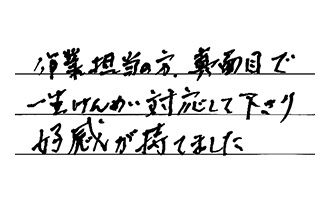 作業担当の方、真面目で
一生けんめい対応して下さり
好感が持てました